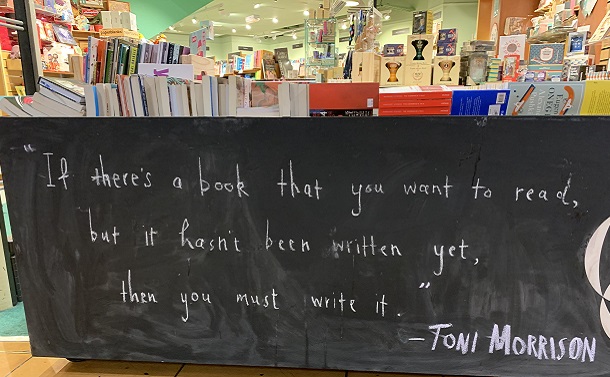 "If there's a book that you want to read,
but it hasn't been written yet,
then you must write it."
- TONI MORRISON